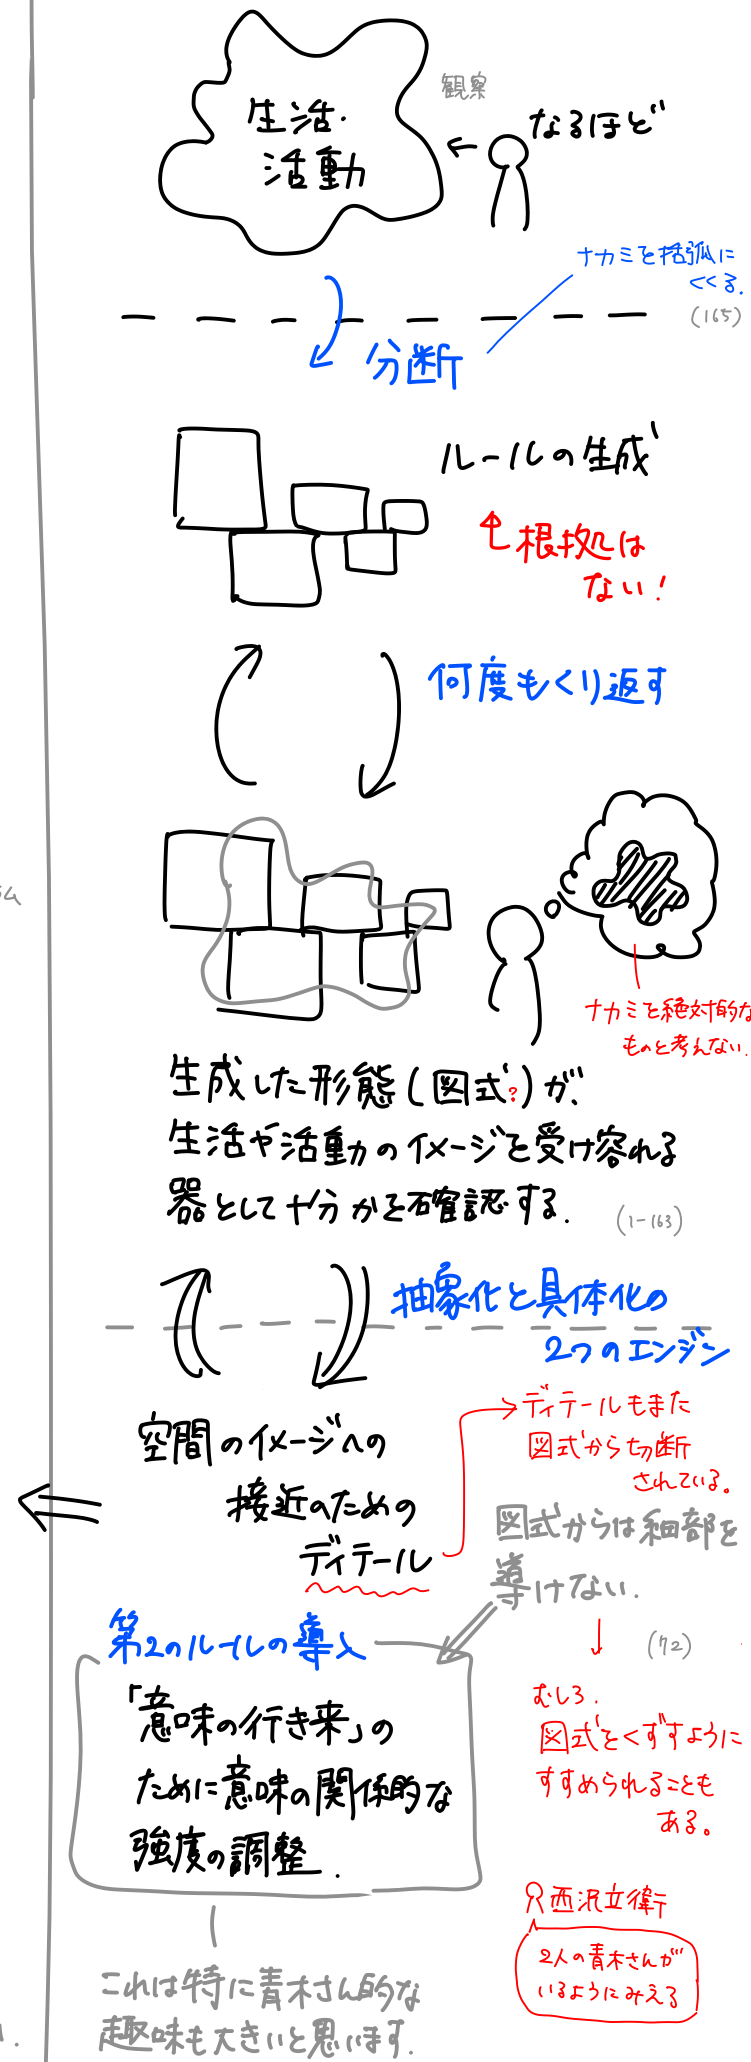 観察
生活・
活動
なるほど
ナカミを括弧に
くくる.
(165)
分断
ルールの生成
根拠は
ない!
何度もくり返す
ナカミを絶対的な
ものと考えない.
生成した形態(図式?)が、
生活や活動のイメージを受け容れる
器として十分かを確認する.
(1-163)
抽象化と具体化の
2つのエンジン
空間のイメージへの
接近のための
ディテール
ディテールもまた
図式から切断
されている。
図式からは細部を
導けない.
(72)
むしろ.
図式をくずすように
すすめられることも
ある。
第2のルールの導入
「意味の行き来」の
ために意味の関係的な
強度の調整.
西沢立衛
2人の青木さんが
いるようにみえる
これは特に青木さん的な
趣味も大きいと思います.